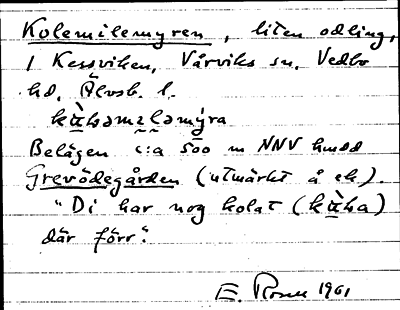 Kolemilemyren, liten odling,
i Kessviken, Vårviks sn, Vedbo
hd, Älvsb. l.
Belägen c:a 500 m NNV hmdd
Grevödegården (utmärkt å ek).
"Di har nog kolat (
där förr".
E. Rosell 1961